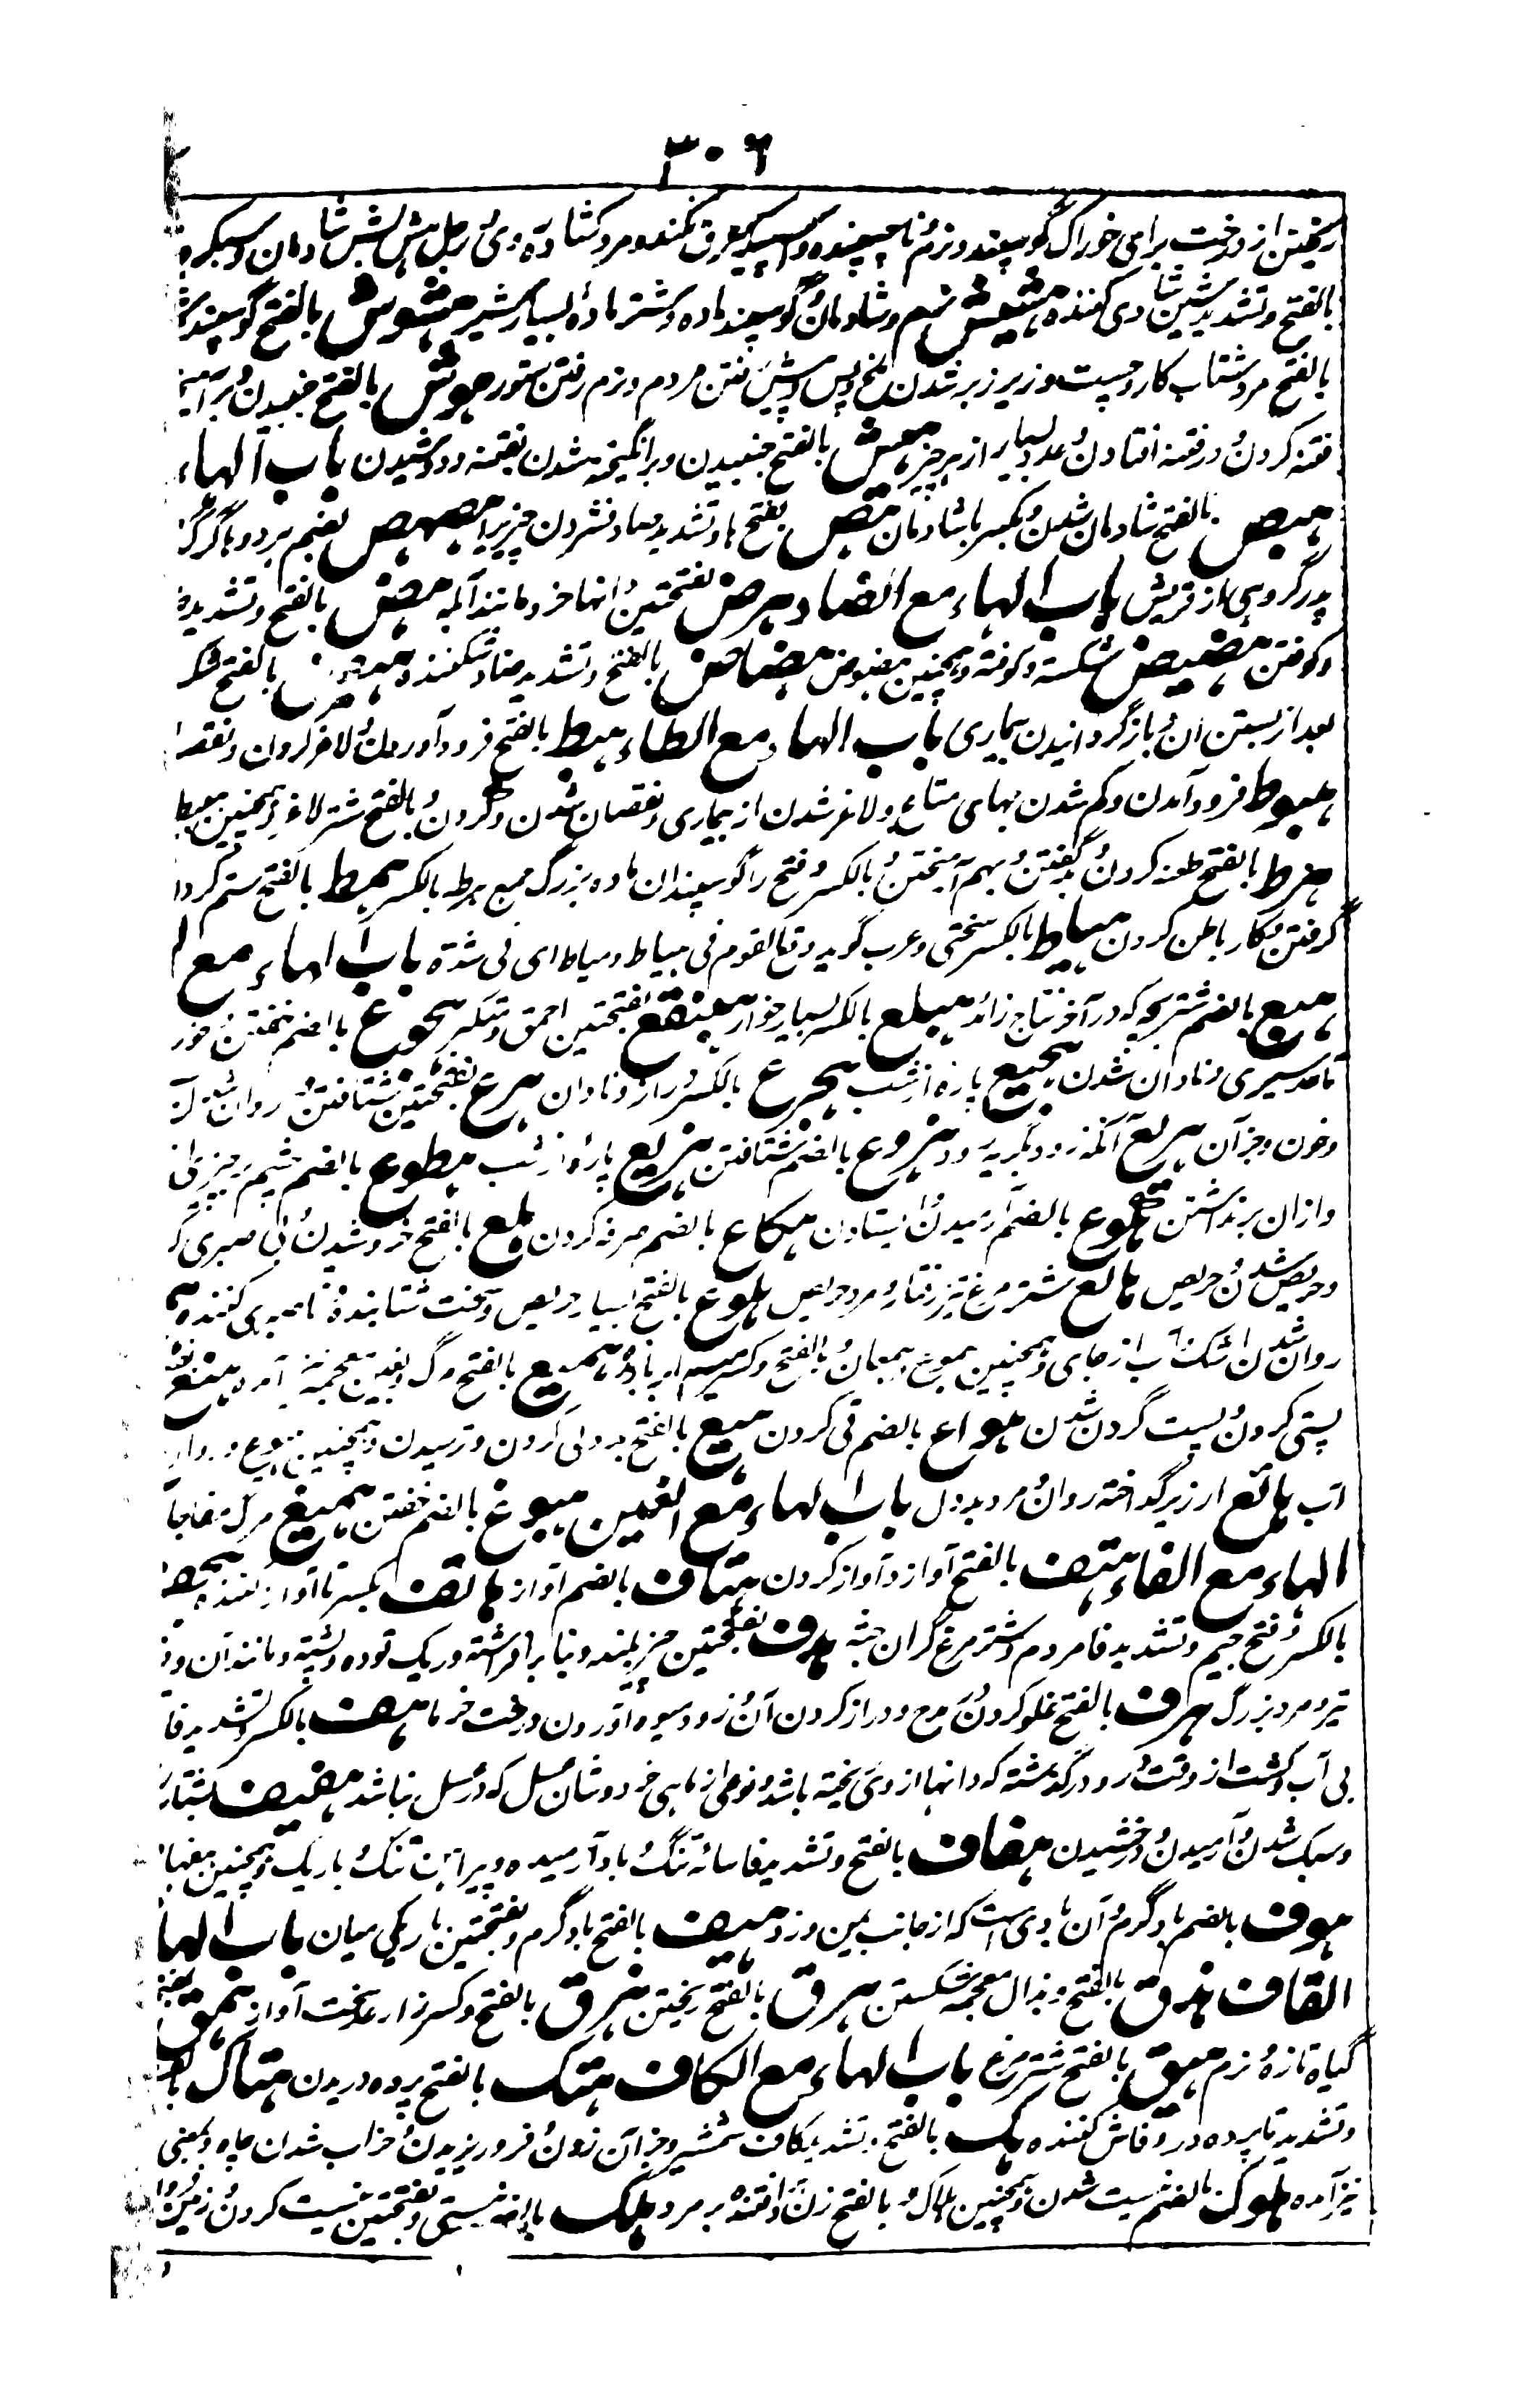 ۳۰۶
ریختن از درخت برای خوراک گوسپند و نرم و اسپ عرق کننده و مرد کشاده روی رجل هش بش شادمان و سبکروح
بالفتح و تشدید شین شادی کننده هشیش نرم و شادمان و گوسپند ماده و شتر ماده بسیار شیر هشوش بالفتح گوسپند
بالفتح مرد شتاب کار و چست و زیر زبر شدن ملخ و پس و پیش رفتن مردم و نرم رفتن ستور هوش بالفتح جنبیدن و بر
فتنه کردن و در فتنه افتادن و عدد بسیار از هر چیز هیش بالفتح جنبیدن و برانگیخته شدن بفتنه و دوشیدن باب الهاء
هبص بالفتح شادمان شدن و بکسر با شادمان هص بفتح ها و تشدید صاد فشردن چیزیرا هصهص بضم هر دو ها گرگ
پدر گروهی از قریش باب الهاء مع الضاد هرض بفتحتین دانها خرد مانند آبله هض بالفتح و تشدید
و کوفتن هضیض شکسته و کوفته و همچنین مهضوض هضاض بالفتح و تشدید ضاد شکننده هیض بالفتح
بعد از بستن آن و بازگردانیدن بیماری باب الهاء مع الطاء هبط بالفتح فرود آوردن و لاغر کردن و نقص
هبوط فرود آمدن و کم شدن بهای متاع و لاغر شدن از بیماری و نقصان شدن و کردن و بالفتح شتر لاغر و همچنین هبیط
هرط بالفتح طعنه کردن و بد گفتن و بهم آمیختن و بالکسر و فتح را گوسپندان ماده بزرگ جمع هرطه بالکسر همط بالفتح ستم کردن
گرفتن و کار باطن کردن هیاط بالکسر سختی و عرب گوید وقع القوم فی هیاط و میاط ای فی شدة باب الهاء مع
هبع بالضم شتر بچه که در آخر نتاج زائد هبلع بالکسر بسیار خوار هبنقع بفتحتین احمق و متکبر هجوع بالضم خفتن و خور
تا حد سیری و نادان شدن هجیع پاره از شب هجرع بالکسر دراز و نادان هرع بفتحتین شتافتن و روان شدن
و خون و جز آن هرع آنکه زود بگرید و دود هزوع بالضم شتافتن هزیع پاره از شب هطوع بالضم چشم بر چیزی
و ازان برنداشتن هکوع بالضم آرمیدن و ایستادن هکاع بالضم سرفه کردن هلع بالفتح خروشیدن و بی صبری
و حریص شدن و حریص هالع شتر مرغ تیز رفتار و مرد حریص هلوع بالفتح بسیار حریص و سخت شتابنده و ناصبری کننده
روان شدن اشک و آب از جای و همچنین هموع و همعان و بالفتح و کسر میم ابر بارنده همیع بالفتح مرگ و بغین معجمه نیز آمده هنع
پستی کردن و پست گردن شدن هواع بالضم قی کردن هیع بالفتح بددلی کردن و ترسیدن و همچنین هیوع و روان
آب هائع ارزیز گداخته روان و مرد بددل باب الهاء مع الغین هبوغ بالضم خفتن همیغ مرگ مفاجا
الهاء مع الفاء هتف بالفتح آواز و آواز کردن هتاف بالضم آواز هاتف بکسر تا آواز کننده هجف
بالکسر و فتح جیم و تشدید فا مردم و شتر مرغ گران جثه هدف بفتحتین چیز بلند و بنا برافراشته و ریگ توده و پشته و مانند آن و
تیر و مرد بزرگ هرف بالفتح غلو کردن در مدح و دراز کردن آن و زود میوه آوردن درخت خرما هف بالکسر و تشدید فا
بی آب و کشت از وقت درو درگذشته که دانها از وی ریخته باشد و نوعی از ماهی خرد و شان عسل که درو عسل نباشد هفیف بشتاب
و سبک شدن و آرمیدن و درخشیدن هفاف بالفتح و تشدید فا سائه تنگ و باد آرمیده و پیراهن تنگ باریک و همچنین هفهاف
هوف بالضم باد گرم و آن بادی است که از جانب یمن وزد هیف بالفتح باد گرم و بفتحتین باریکی میان باب الهاء
القاف هذق بالفتح و بذال معجمه شکستن هرق بالفتح ریختن هزق بالفتح و کسر زا رعد سخت آواز همق
گیاه تازه نرم هیق بالفتح شتر مرغ باب الهاء مع الکاف هتک بالفتح پرده دریدن هتاک
و تشدید تا پرده در و فاش کننده هک بالفتح و تشدید کاف شمشیر و جز آن زدن و فرو ریزیدن و خراب شدن چاه و بمعنی
نیز آمده هلوک بالضم نیست شدن و همچنین هلاک و بالفتح زن افتنده بر مرد هلک بالضم نیستی و بفتحتین نیست کردن و زمین